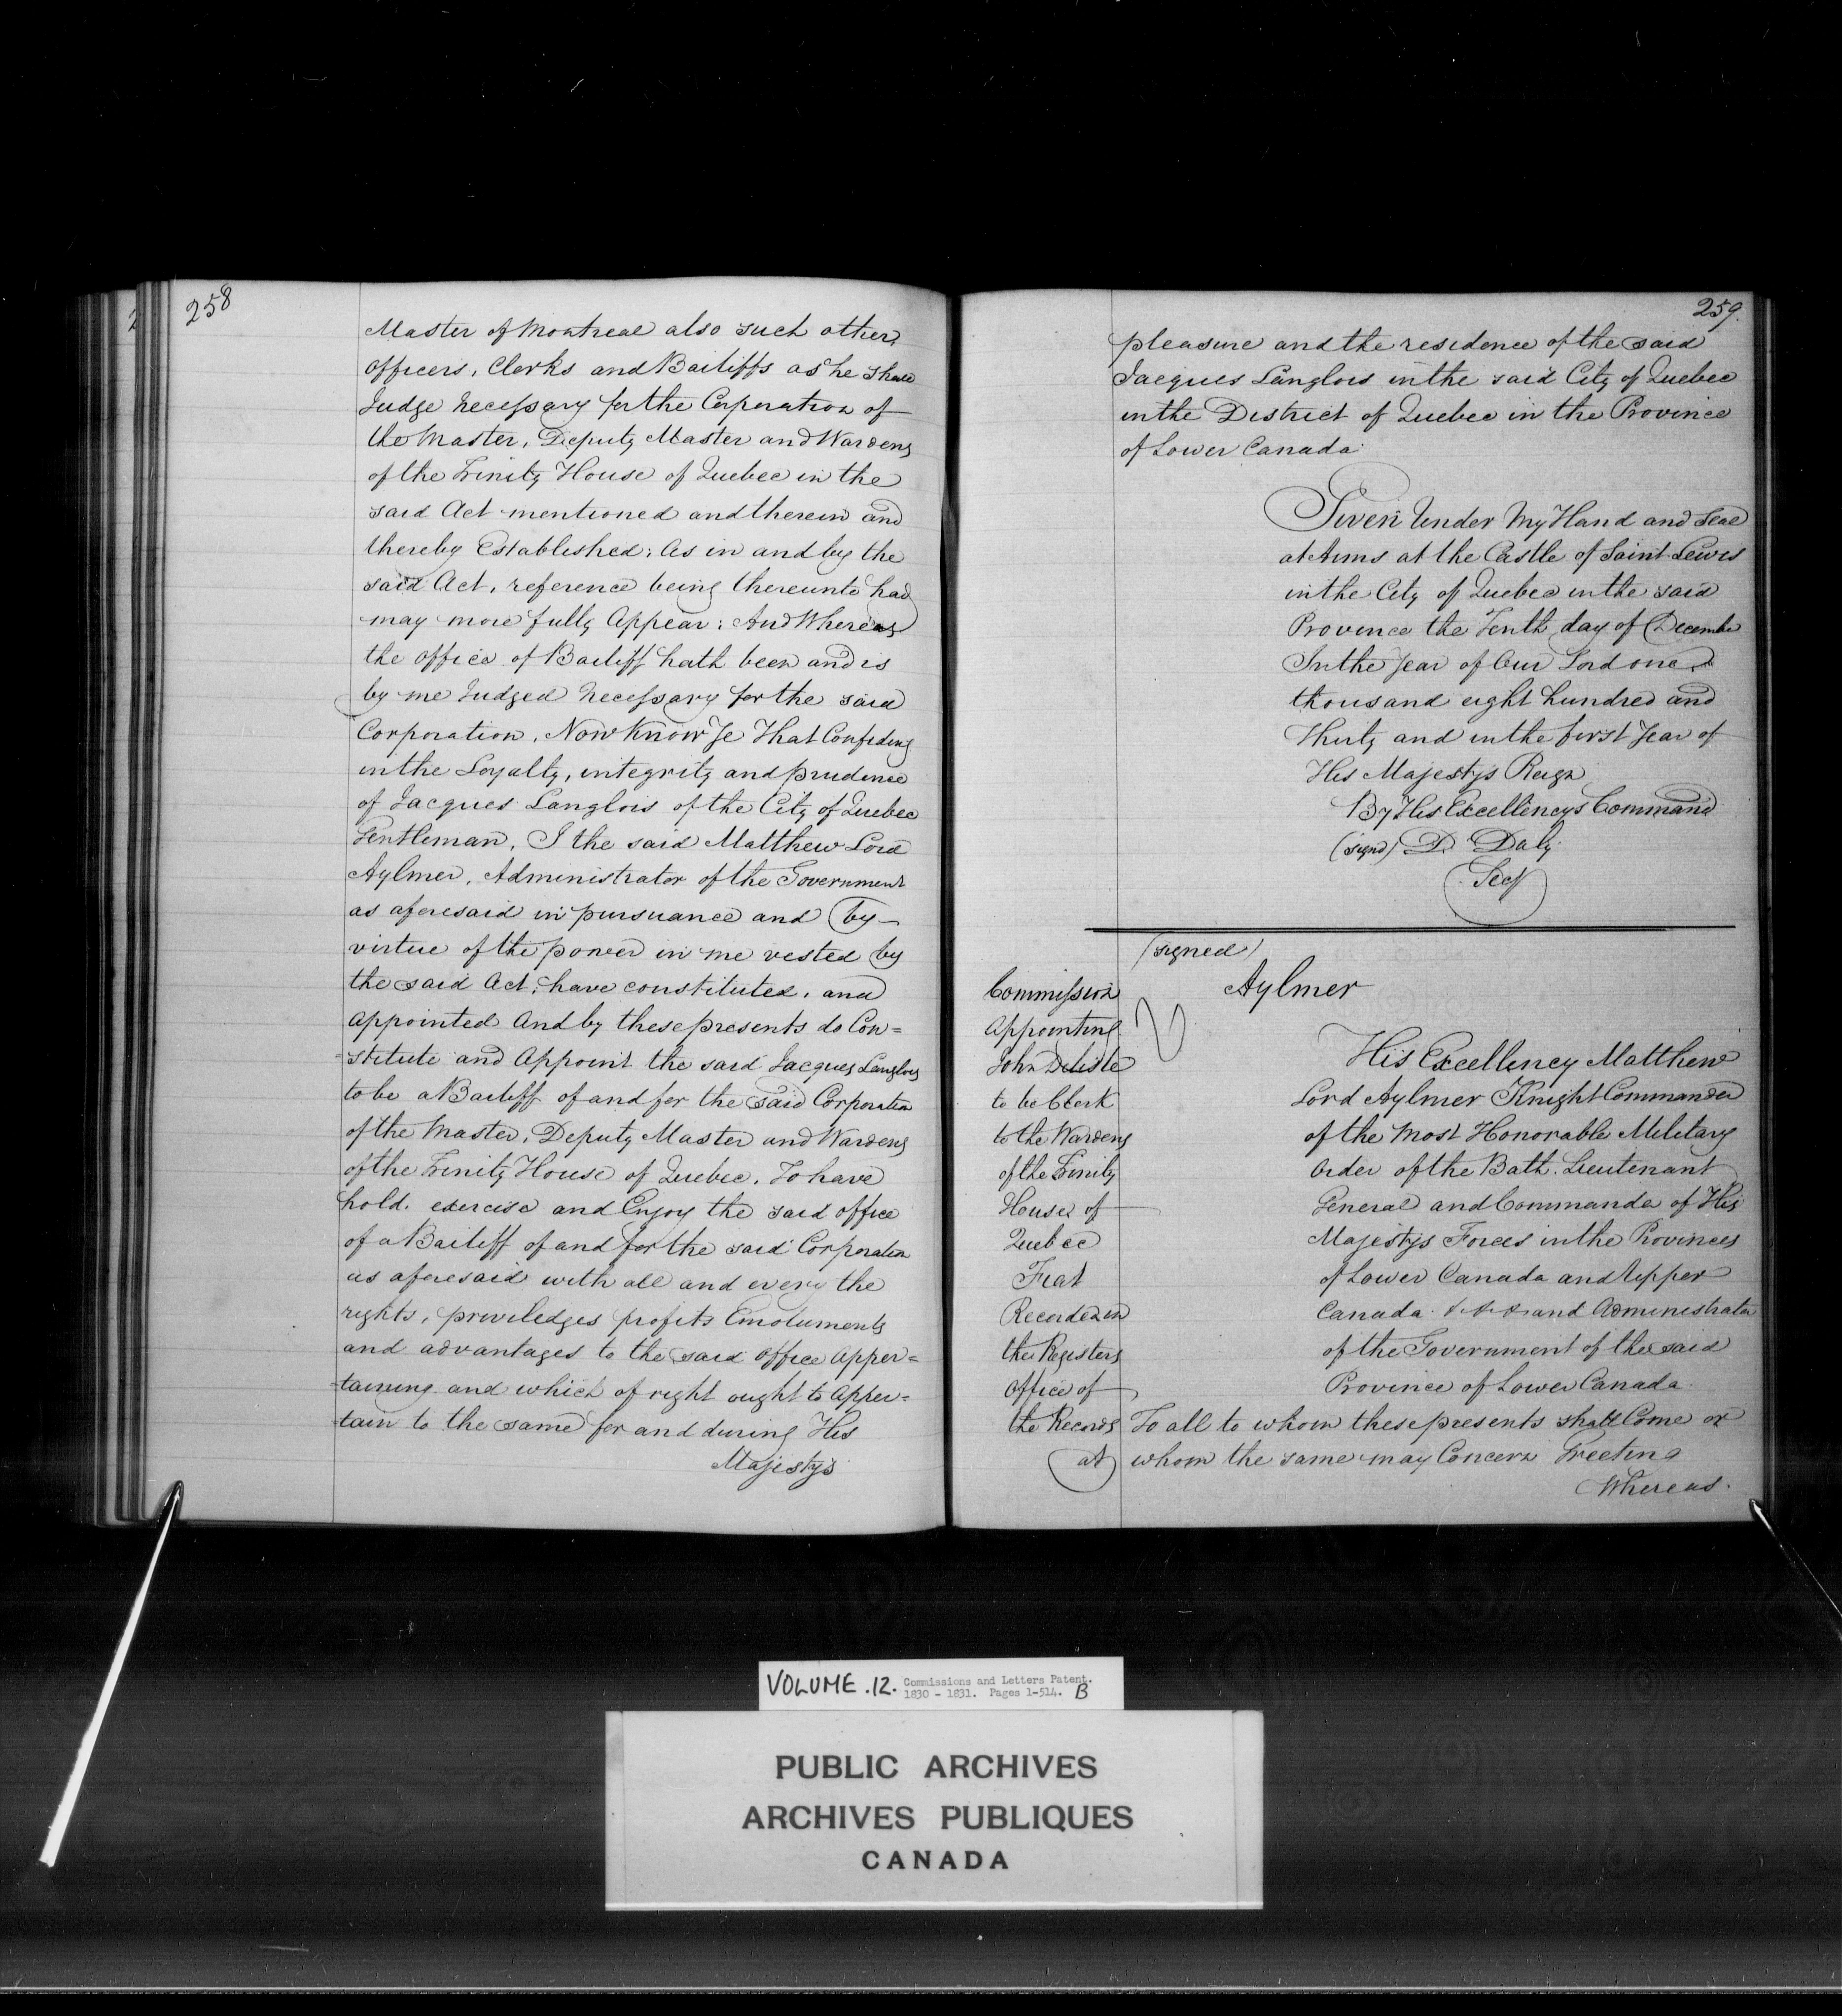 258
Master of Montreal also such other
officers, Clerks and Bailiffs as he shall
Judge necessary for the Corporation of
the Master, Deputy Master and Wardens
of the Trinity House of Quebec in the
said Act mentioned and therein and
thereby Established: As in and by the
said Act, reference being thereunto had
may more fully Appear: And Whereas
the office of Bailiff hath been and is
by me Judged necessary for the said
Corporation, Now Know Ye That Confiding
in the Loyalty, integrity and prudence
of Jacques Langlois of the City of Quebec
Gentleman, I the said Matthew Lord
Aylmer, Administrator of the Government
as aforesaid in pursuance and by
virtue of the power in me vested by
the said Act, have constituted, and
appointed And by these presents do Con=
=stitute and Appoint the said Jacques Langlois
to be a Bailiff of and for the said Corporation
of the Master, Deputy Master and Wardens
of the Trinity House of Quebec, To have
hold, exercise and Enjoy the said office
of a Bailiff of and for the said Corporation
as aforesaid with all and every the
rights, priviledges profits Emoluments
and advantages to the said office apper=
=taining and which of right ought to apper=
=tain to the same for and during His
Majestys
259.
pleasure and the residence of the said
Jacques Langlois in the said City of Quebec
in the District of Quebec in the Province
of Lower Canada
Given Under My Hand and Seal
at Arms at the Castle of Saint Lewis
in the City of Quebec in the said
Province the Tenth day of December
In the Year of Our Lord one
thousand eight hundred and
Thirty and in the first Year of
His Majestys Reign
By His Excellencys Command
(signd) D. Daly
Secy
(signed)
Aylmer
Commission
Appointing
John Delisle
to be Clerk
to the Wardens
of the Trinity
House of
Quebec
Fiat
Recorded in
the Registers
Office of
the Records
at
His Excellency Matthew
Lord Aylmer Knight Commander
of the Most Honorable Military
Order of the Bath. Lieutenant
General and Commander of His
Majestys Forces in the Provinces
of Lower Canada and Upper
Canada. &c &c &c and Administrator
of the Government of the said
Province of Lower Canada.
To all to whom these presents shall Come or
whom the same may Concern Greeting
Whereas.
VOLUME.12. Commissions and Letters Patent.
1830 - 1831. Pages 1-514. B
PUBLIC ARCHIVES
ARCHIVES PUBLIQUES
CANADA